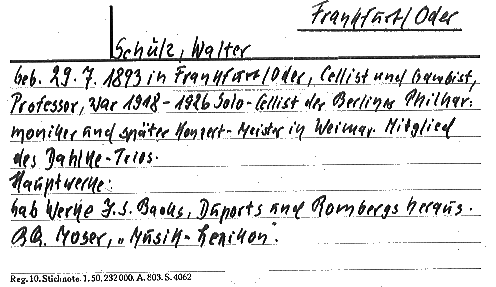 Frankfurt/Oder
Schulz, Walter
Geb. 29. 7. 1893 in Frankfurt/Oder, Cellist und Gambist,
Professor, war 1918-1926 Solo-Cellist der Berliner Philhar-
moniker und später Konzert-Meister in Weimar. Mitglied
des Dahlke-Trios.
Hauptwerke:
Gab Werke J. S. Bachs, Duports und Rombergs heraus.
Moser, „Musik-Lexikon".
Reg. 10. Stichnote. 1. 50. 232 000. A. 803. S. 4062